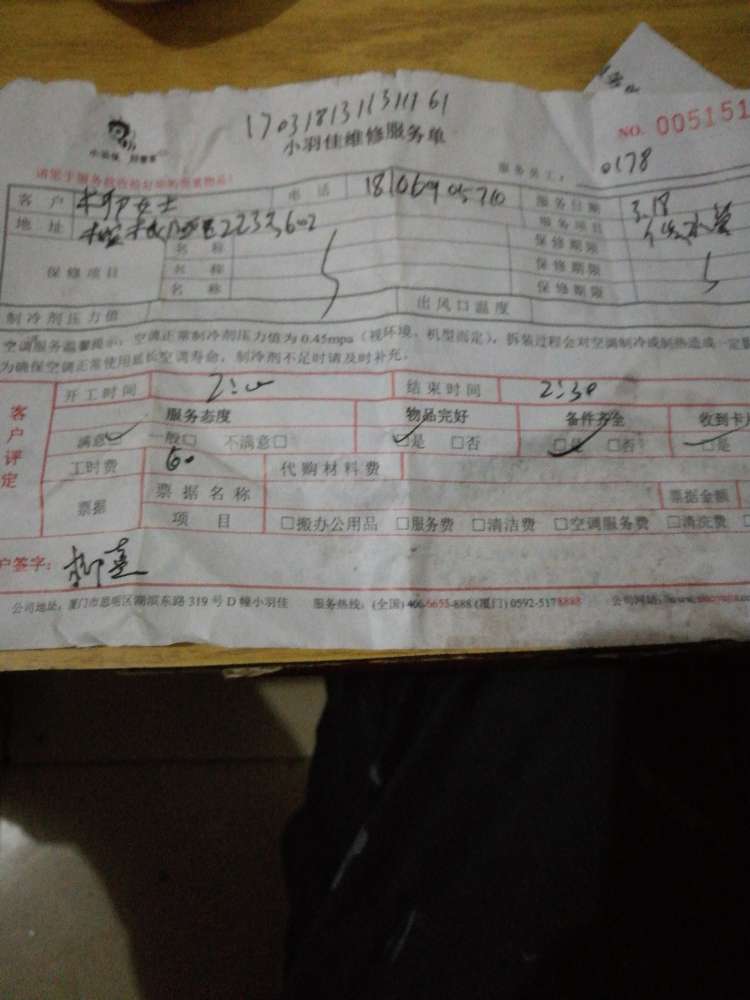 17031813113111 61
小羽佳维修服务单
NO. 005151
请您于服务前收检好您的贵重物品!
服务员工: 0178
客 户 柳女士 电 话 服务日期 3.18
地 址 2233,602 服务项目 修水管
保修项目 名 称 保修期限
名 称 保修期限
名 称 保修期限
制冷剂压力值 出风口温度
空调服务温馨提示: 空调正常制冷剂压力值为 0.45mpa (视环境、机型而定), 拆装过程会对空调制冷或制热造成一定影
为确保空调正常使用延长空调寿命, 制冷剂不足时请及时补充。
客户评定
开工时间 2:00 结束时间 2:30
服务态度 物品完好 备件齐全 收到卡片
满意✓ 一般□ 不满意□ ☑是 □否 ☑是 □否 ☑是
工时费 60 代购材料费
票据 票 据 名 称 票据金额
项 目 □搬办公用品 □服务费 □清洁费 □空调服务费 □清洗费
户签字:
公司地址: 厦门市思明区湖滨东路 319 号 D 幢小羽佳 服务热线: (全国) 400-6655-888 (厦门) 0592-5178888 公司网站: